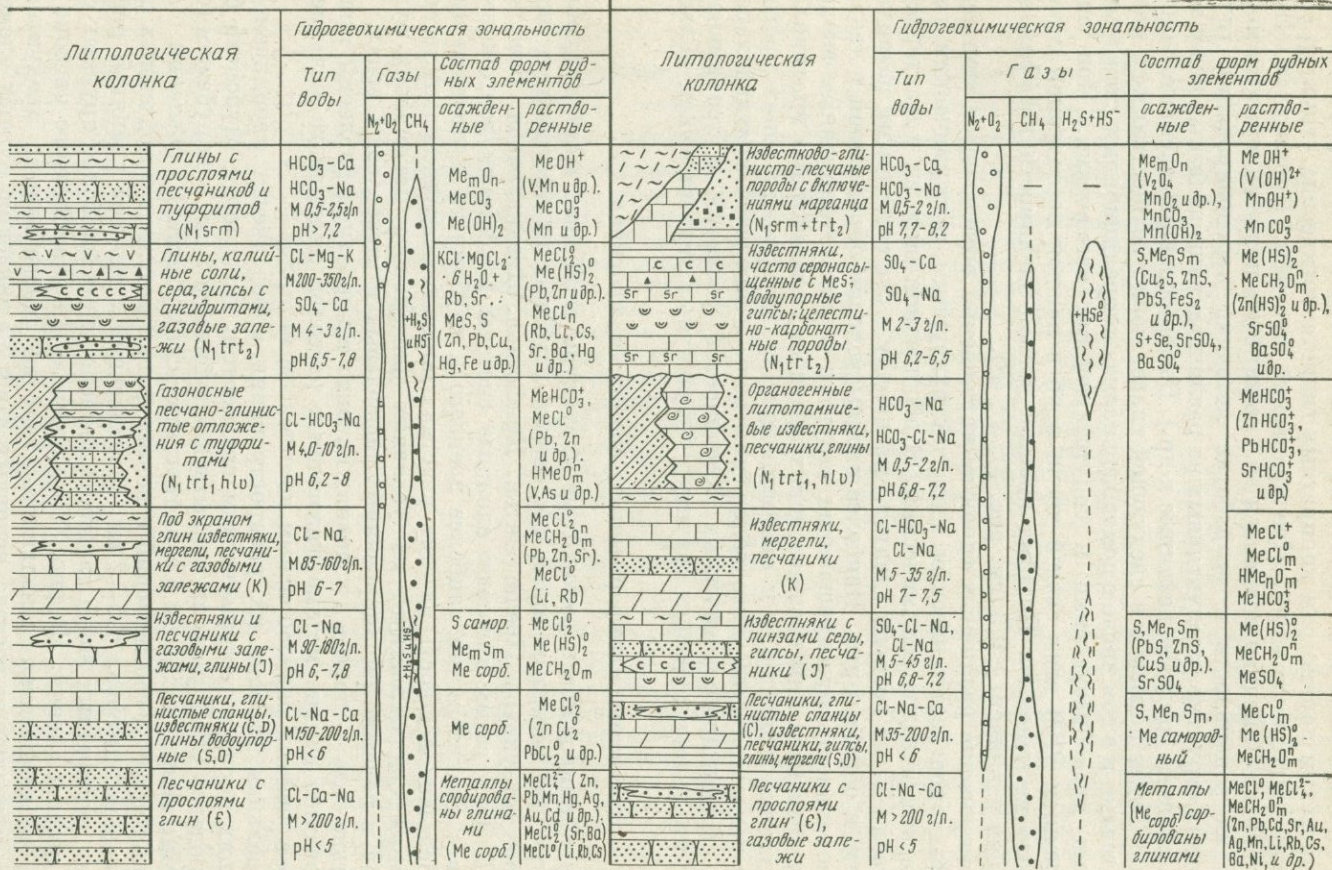 Литологическая
колонка
Гидрогеохимическая зональность
Тип
воды
Газы
Состав форм руд-
ных элементов
N₂+O₂
CH₄
осажден-
ные
раство-
ренные
Глины с
прослоями
песчаников и
туффитов
(N₁srm)
HCO₃-Ca
HCO₃-Na
М 0,5-2,5г/л
pH > 7,2
MeₘOₙ
MeCO₃
Me(OH)₂
MeOH⁺
(V,Mn и др.).
MeCO₃⁰
(Mn и др.)
Глины, калий-
ные соли,
сера, гипсы с
ангидритами,
газовые зале-
жи (N₁trt₂)
Cl-Mg-K
М200-350г/л.
SO₄-Ca
М 4-3 г/л.
pH 6,5-7,8
+H₂S
и HS⁻
KCl·MgCl₂·
·6H₂O+
Rb, Sr.
MeS, S
(Zn, Pb, Cu,
Hg, Fe и др)
MeCl₂⁰
Me(HS)₂⁰
(Pb, Zn и др.).
MeClₙ⁰
(Rb, Li, Cs,
Sr, Ba, Hg
и др.)
Газоносные
песчано-глинис-
тые отложе-
ния с туффи-
тами
(N₁trt₁ hlv)
Cl-HCO₃-Na
М 4,0-10г/л.
pH 6,2-8
MeHCO₃⁺,
MeCl⁰
(Pb, Zn
и др.).
HMeOₘⁿ
(V,As и др.)
Под экраном
глин известняки,
мергели, песчани-
ки с газовыми
залежами (K)
Cl-Na
М 85-160г/л.
pH 6-7
MeCl₂⁰
MeCH₂Oₘⁿ
(Pb, Zn, Sr).
MeCl⁰
(Li, Rb)
Известняки и
песчаники с
газовыми зале-
жами, глины (J)
Cl-Na
М 90-180г/л.
pH 6,-7,8
+H₂S и HS⁻
S самор.
MeₘSₘ
Me сорб.
MeCl₂⁰
Me(HS)₂⁰
MeCH₂Oₘ
Песчаники, гли-
нистые сланцы,
известняки (C, D)
Глины водоупор-
ные (S,O)
Cl-Na-Ca
М150-200г/л.
pH < 6
Me сорб.
MeCl₂⁰
(ZnCl₂⁰
PbCl₂⁰ и др.)
Песчаники с
прослоями
глин (Є)
Cl-Ca-Na
М >200г/л.
pH <5
Металлы
сорбирова-
ны глина-
ми
(Me сорб.)
MeCl₄²⁻ (Zn,
Pb,Mn,Hg,Ag,
Au,Cd и др.).
MeCl₂⁰ (Sr,Ba)
MeCl⁰ (Li,Rb,Cs)
Литологическая
колонка
Гидрогеохимическая зональность
Тип
воды
Газы
Состав форм рудных
элементов
N₂+O₂
CH₄
H₂S+HS⁻
осажден-
ные
раство-
ренные
Известково-гли-
нисто-песчаные
породы с включе-
ниями марганца
(N₁srm+trt₂)
HCO₃-Ca
HCO₃-Na
М 0,5-2 г/л.
pH 7,7-8,2
MeₘOₙ
(V₂O₄
MnO₂ и др.),
MnCO₃
Mn(OH)₂
MeOH⁺
(V(OH)²⁺
MnOH⁺)
MnCO₃⁰
Известняки,
часто серонасы-
щенные с MeS;
водоупорные
гипсы; целести-
но-карбонат-
ные породы
(N₁trt₂)
SO₄-Ca
SO₄-Na
М 2-3 г/л.
pH 6,2-6,5
+HSe⁰
S,MeₙSₘ
(Cu₂S, ZnS,
PbS, FeS₂
и др.),
S+Se, SrSO₄,
BaSO₄⁰
Me(HS)₂⁰
MeCH₂Oₘⁿ
(Zn(HS)₂⁰ и др.),
SrSO₄⁰
BaSO₄⁰
и др.
Органогенные
литотамние-
вые известняки,
песчаники, глины
(N₁trt₁, hlv)
HCO₃-Na
HCO₃-Cl-Na
М 0,5-2 г/л.
pH 6,8-7,2
MeHCO₃⁺
(ZnHCO₃⁺,
PbHCO₃⁺,
SrHCO₃⁺
и др)
Известняки,
мергели,
песчаники
(K)
Cl-HCO₃-Na
Cl-Na
М 5-35 г/л.
pH 7-7,5
MeCl⁺
MeClₘ⁰
HMeₙOₘ⁻
MeHCO₃⁺
Известняки с
линзами серы,
гипсы, песча-
ники (J)
SO₄-Cl-Na,
Cl-Na
М 5-45 г/л.
pH 6,8-7,2
S,MeₙSₘ
(PbS, ZnS,
CuS и др.).
SrSO₄
Me(HS)₂⁰
MeCH₂Oₘⁿ
MeSO₄
Песчаники, гли-
нистые сланцы
(C), известняки,
песчаники, гипсы,
глины, мергели (S,O)
Cl-Na-Ca
М35-200г/л.
pH < 6
S, MeₙSₘ,
Me самород-
ный
MeClₘ⁰
Me(HS)₂⁰
MeCH₂Oₘⁿ
Песчаники с
прослоями
глин (Є),
газовые зале-
жи
Cl-Na-Ca
М >200 г/л.
pH <5
Металлы
(Me сорб) сор-
бированы
глинами
MeCl⁰, MeCl₄²⁻,
MeCH₂Oₘⁿ
(Zn,Pb,Cd,Sr,Au,
Ag,Mn,Li,Rb,Cs,
Ba,Ni, и др.)
C C C C C
C C
Sr Sr Sr
Sr Sr Sr
C C C C